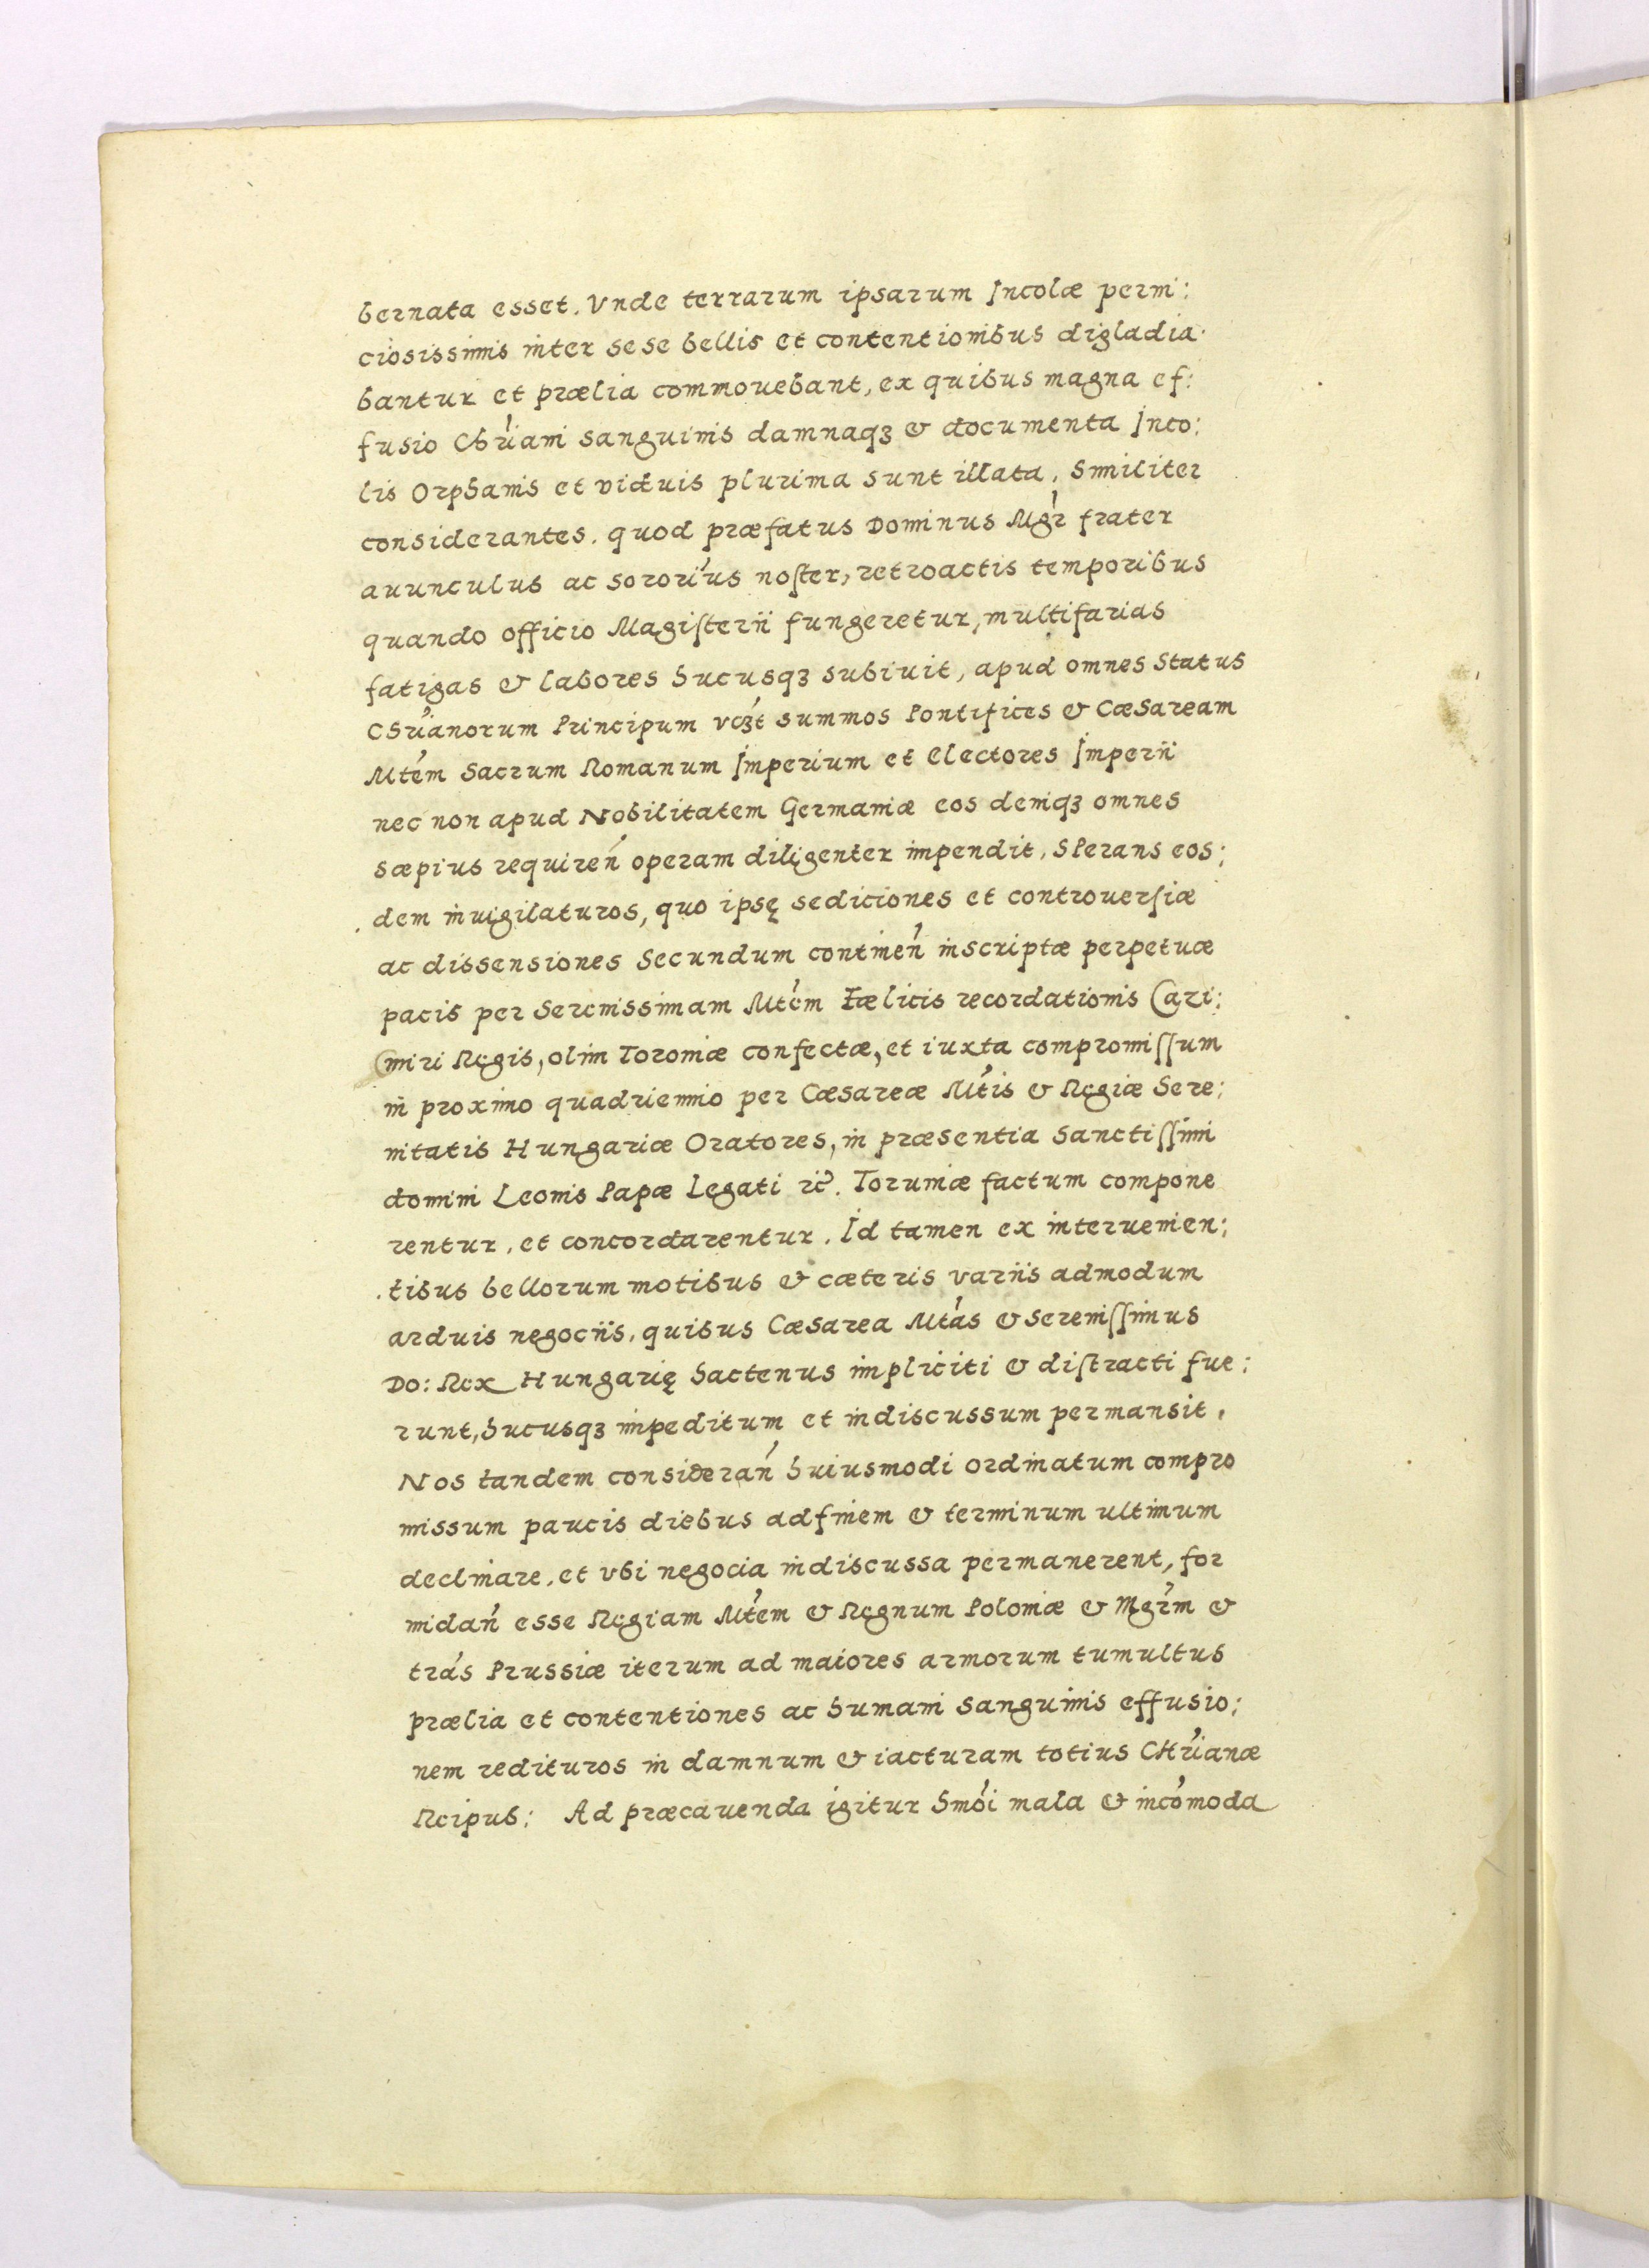 bernata esset. Vnde terrarum ipsarum Incolæ perni:
ciosissimis inter sese bellis et contentionibus digladia:
bantur et prælia commouebant, ex quibus magna ef:
fusio Chr̃iani sanguinis damnaqꝫ & documenta Inco:
lis Orphanis et viduis plurima sunt illata. Similiter
considerantes. quod præfatus Dominus Mgr̃ frater
auunculus ac sororius noster, retroactis temporibus
quando officio Magisterii fungeretur, multifarias
fatigas & labores hucusqꝫ subiuit, apud omnes Status
Chr̃ianorum Principum vcꝫt summos Pontifices & Cæsaream
Mtẽm Sacrum Romanum Imperium et Electores Imperii
nec non apud Nobilitatem Germaniæ eos deniqꝫ omnes
sæpius requireñ operam diligenter impendit, Sperans eos:
dem inuigilaturos, quo ipsę sediciones et controuersiæ
ac dissensiones Secundum contineñ inscriptæ perpetuæ
pacis per Serenissimam Mtẽm Fælicis recordationis Cazi:
miri Regis, olim Toroniæ confectæ, et iuxta compromissum
in proximo quadriennio per Cæsareæ Mt̃is & Regiæ Sere:
nitatis Hungariæ Oratores, in præsentia Sanctissimi
domini Leonis Papæ Legati ꝛc̃. Toruniæ factum compone
rentur, et concordarentur. Id tamen ex interuenien:
tibus bellorum motibus & cæteris variis admodum
arduis negociis, quibus Cæsarea Mtãs & Serenissimus
Do: Rex Hungarię hactenus impliciti & distracti fue:
runt, hucusqꝫ impeditum et indiscussum permansit.
Nos tandem consideran̄ huiusmodi ordinatum compro
missum paucis diebus ad finem & terminum ultimum
declinare, et vbi negocia indiscussa permanerent, for
midan̄ esse Regiam Mtẽm & Regnum Poloniæ & Mgr̃m &
tr̃as Prussiæ iterum ad maiores armorum tumultus
prælia et contentiones ac humani Sanguinis effusio:
nem redituros in damnum & iacturam totius CHr̃ianæ
Reipub: Ad præcauenda igitur hmõi mala & incõmoda